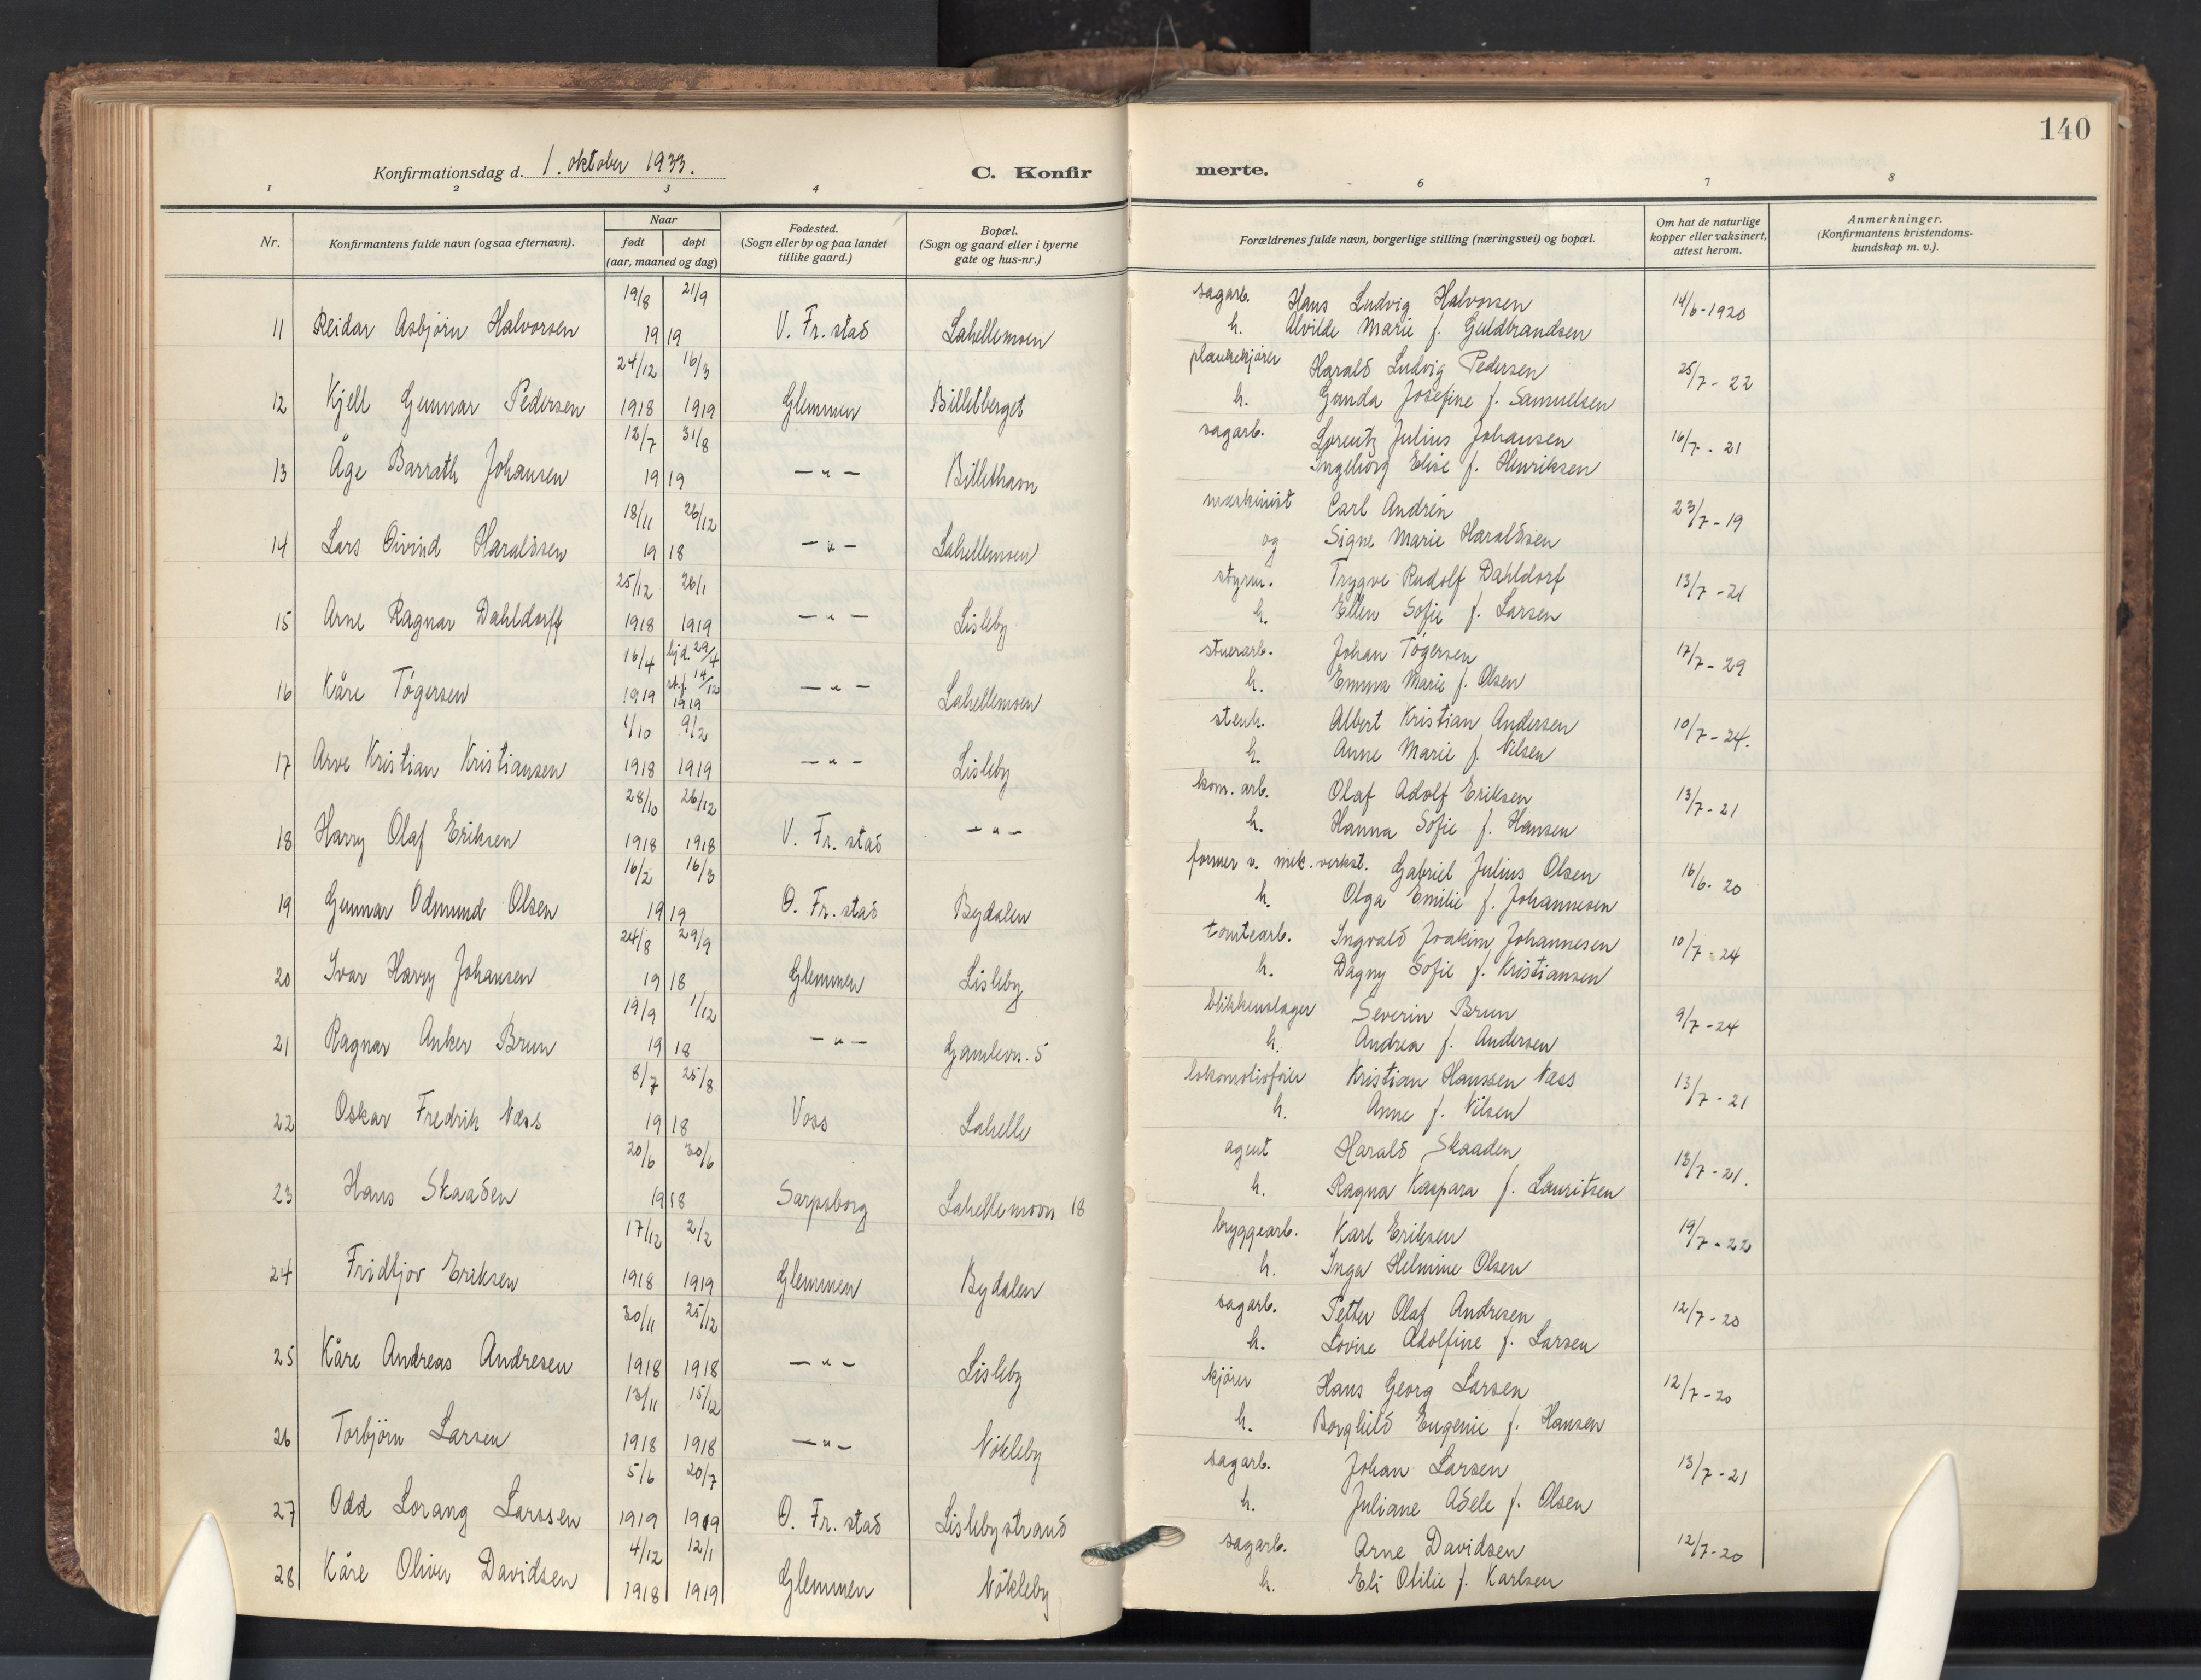 140
Konfirmationsdag d. 1. oktober 1933.
C. Konfir
merte.
1 2 3 4 6 7 8
Nr.
Konfirmantens fulde navn (ogsaa efternavn).
Naar
født døpt
(aar, maaned og dag)
Fødested.
(Sogn eller by og paa landet
tillike gaard.)
Bopæl.
(Sogn og gaard eller i byerne
gate og hus-nr.)
Forældrenes fulde navn, borgerlige stilling (næringsvei) og bopæl.
Om hat de naturlige
kopper eller vaksinert,
attest herom.
Anmerkninger.
(Konfirmantens kristendoms-
kundskap m. v.).
19/8 21/9 sagarb. Hans Ludvig Halvorsen 14/6-1920
11 Reidar Asbjörn Halvorsen 19 19 V. Fr. stad Lahellemoen h. Alvilde Marie f. Guldbrandsen
24/12 16/3 plankekjører Harald Ludvig Pedersen 25/7-22
12 Kjell Gunnar Pedersen 1918 1919 Glemmen Billetberget h. Gunda Josefine f. Samuelsen
12/7 31/8 sagarb. Lorentz Julius Johansen 16/7-21
13 Åge Barrath Johansen 19 19 -"- Billethavn Ingeborg Elise f. Henriksen
18/11 26/12 maskinist Carl Andrén 23/7-19
14 Lars Oivind Haraldsen 19 18 -"- Lahellemoen og Signe Marie Haraldsen
25/12 26/1 styrm. Trygve Rudolf Dahldorf 13/7-21
15 Arne Ragnar Dahldorff 1918 1919 -"- Lisleby h. Ellen Sofie f. Larsen
16/4 hjd. 29/4 stuerarb. Johan Tögersen 17/7-29
16 Kåre Tögersen 1919 st.f. 14/12 1919 -"- Lahellemoen h. Emma Marie f. Olsen
1/10 9/2 stenh. Albert Kristian Andersen 10/7-24.
17 Arve Kristian Kristiansen 1918 1919 -"- Lisleby h. Anne Marie f. Nilsen
28/10 26/12 kom. arb. Olaf Adolf Eriksen 13/7-21
18 Harry Olaf Eriksen 1918 1918 V. Fr. stad -"- h. Hanna Sofie f. Hansen
16/2 16/3 former v. mek. verkst. Gabriel Julius Olsen 16/6-20
19 Gunnar Odmund Olsen 19 19 Ö. Fr. stad Bydalen h. Olga Emilie f. Johannesen
24/8 29/9 tomtearb. Ingvald Joakim Johannesen 10/7-24
20 Ivar Harry Johansen 19 18 Glemmen Lisleby h. Dagny Sofie f. Kristiansen
19/9 1/12 blikkenslager Severin Brun 9/7-24
21 Ragnar Anker Brun 19 18 -"- Gamlevn. 5 h. Andrea f. Andersen
8/7 25/8 lokomotivfører Kristian Hanssen Næss 13/7-21
22 Oskar Fredrik Næss 19 18 Voss Lahelle h. Anne f. Nilsen
20/6 30/6 agent Harald Skaaden 13/7-21.
23 Hans Skaaden 19 18 Sarpsborg Lahellemoen 18 h. Ragna Kaspara f. Lauritsen
17/12 2/2 bryggearb. Karl Eriksen 19/7-22
24 Fridtjov Eriksen 1918 1919 Glemmen Bydalen h. Inga Helmine Olsen
30/11 25/12 sagarb. Petter Olaf Andresen 12/7-20
25 Kåre Andreas Andresen 1918 1918 -"- Lisleby h. Lovise Adolfine f. Larsen
13/11 15/12 kjörer Hans Georg Larsen 12/7-20
26 Torbjörn Larsen 1918 1918 -"- Nökleby h. Borghild Eugenie f. Hansen
5/6 20/7 sagarb. Johan Larsen 13/7-21
27 Odd Lorang Larssen 1919 1919 Ö. Fr. stad Lislebystrand h. Juliane Adele f. Olsen
4/12 12/1 sagarb. Arne Davidsen 12/7-20
28 Kåre Oliver Davidsen 1918 1919 Glemmen Nökleby h. Eli Otilie f. Karlsen